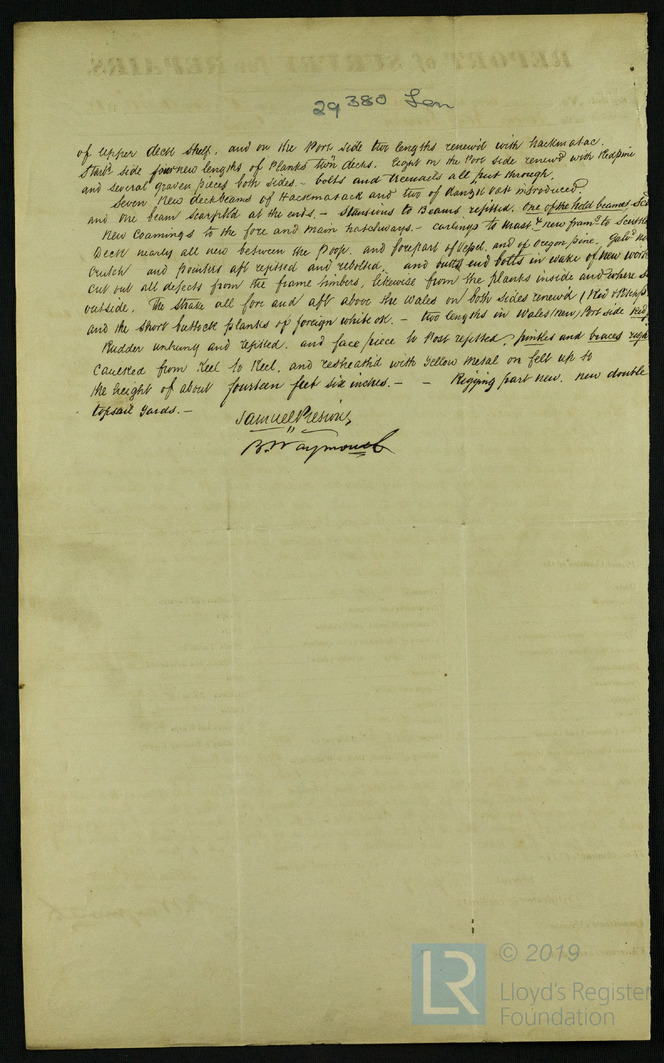 REPORT of SURVEY for REPAIRS.
29380 Lon
of upper deck Shelf. and on the Port side two lengths renew'd with hackmatac.
Starbd side four new lengths of Planks twn decks. Eight on the Port side renew'd with Redpine
and several graven pieces both sides. - bolts and treenails all put through.
Seven New deck beams of Hackmatack and two of Danzig oak introduced.
and one beam scarph'd at the ends. - Stansions to Beams refitted. One of the hold beams
New Coamings to the fore and main hatchways. - carlings to Mast & new fram'g to
Deck nearly all new between the Poop. and forepart of Vessel. and of oregon pine.
Crutch and pointers aft refitted and rebolted. and butt end bolts in wake of new work
cut out all defects from the frame timbers, likewise from the planks inside and where
outside. The Strake all fore and aft above the Wales on both sides renew'd
and the short buttock planks of foreign white ok. - two lengths in Wales new, Port side
Rudder unhung and refitted. and face piece to Post refitted, pintles and braces
Caulked from Keel to Reel, and resheath'd with Yellow metal on felt up to
the height of about fourteen feet six inches. - - Rigging part new. new double
topsail yards. -
Samuel Preston
B. Waymouth
LR
© 2019
Lloyd's Register
Foundation